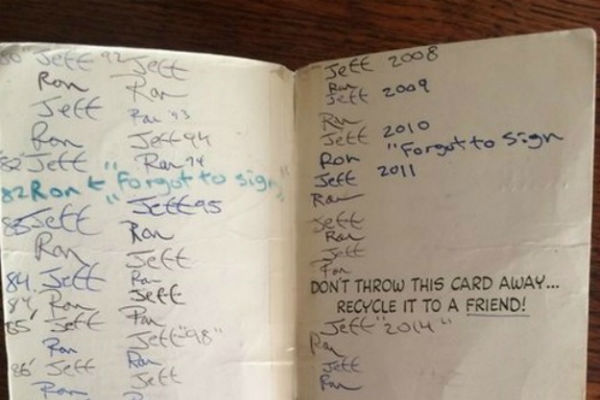 80' Jeff
Ron
Jeff
Ron
82' Jeff
82 Ron ← "Forgot to sign"
83 Jeff
Ron
84. Jeff
84' Ron
85' Jeff
Ron
86' Jeff
Ron
92 Jeff
Ron
Ron '93
Jeff 94
Ron 94
Jeff 95
Ron
Jeff
Ron
Jeff
Ron
Jeff "98"
Ron
Jeff
Ron
Jeff 2008
Ron
Jeff 2009
Ron
Jeff 2010
Ron "Forgot to Sign
Jeff 2011
Ron
Jeff
Ron
Jeff
Ron
DON'T THROW THIS CARD AWAY...
RECYCLE IT TO A FRIEND!
Jeff "2014"
Ron
Jeff
Ron